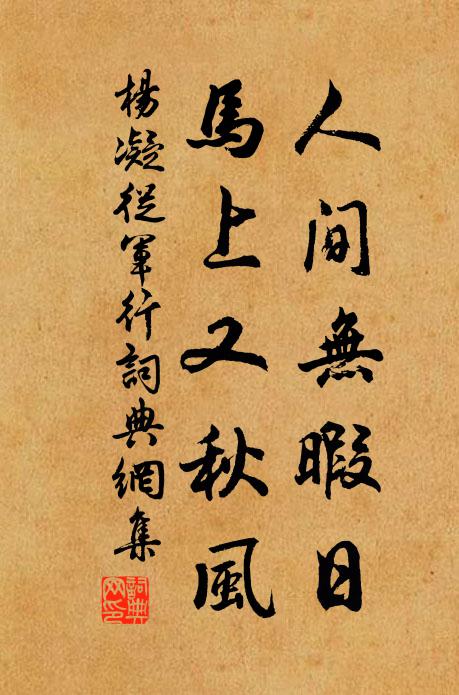 人間無暇日
馬上又秋風
楊凝從軍行詞典網集
詞典
网印